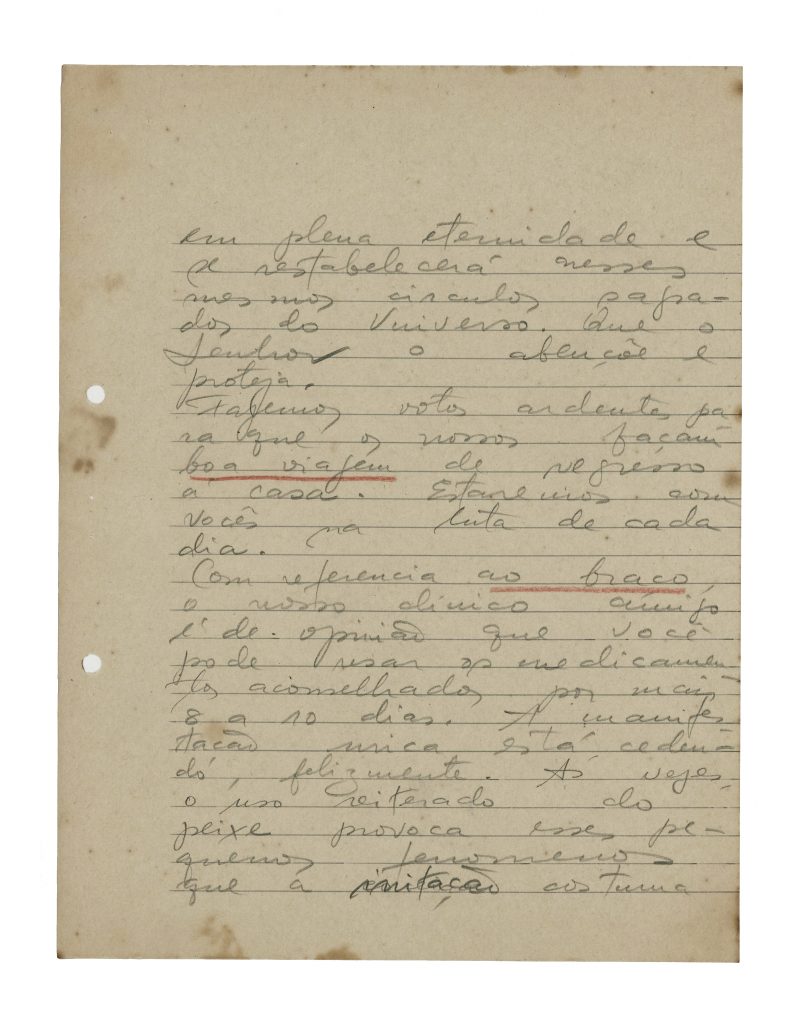 em plena eternidade e
se restabelecerá nesses
mesmos circulos sagra-
dos do Universo. Que o
Senhor o abençõe e
proteja.
Fazemos votos ardentes pa
ra que os nossos façam
boa viagem de regresso
a casa. Estaremos com
vocês na luta de cada
dia.
Com referencia ao braço,
o nosso clinico amigo
é de opinião que você
pode usar os medicamen-
tos aconselhados por mais
8 a 10 dias. A manifes
tação unica está ceden-
do, felizmente. As vezes,
o uso reiterado do
peixe provoca esses pe-
quenos fenomenos
que a irritação costuma